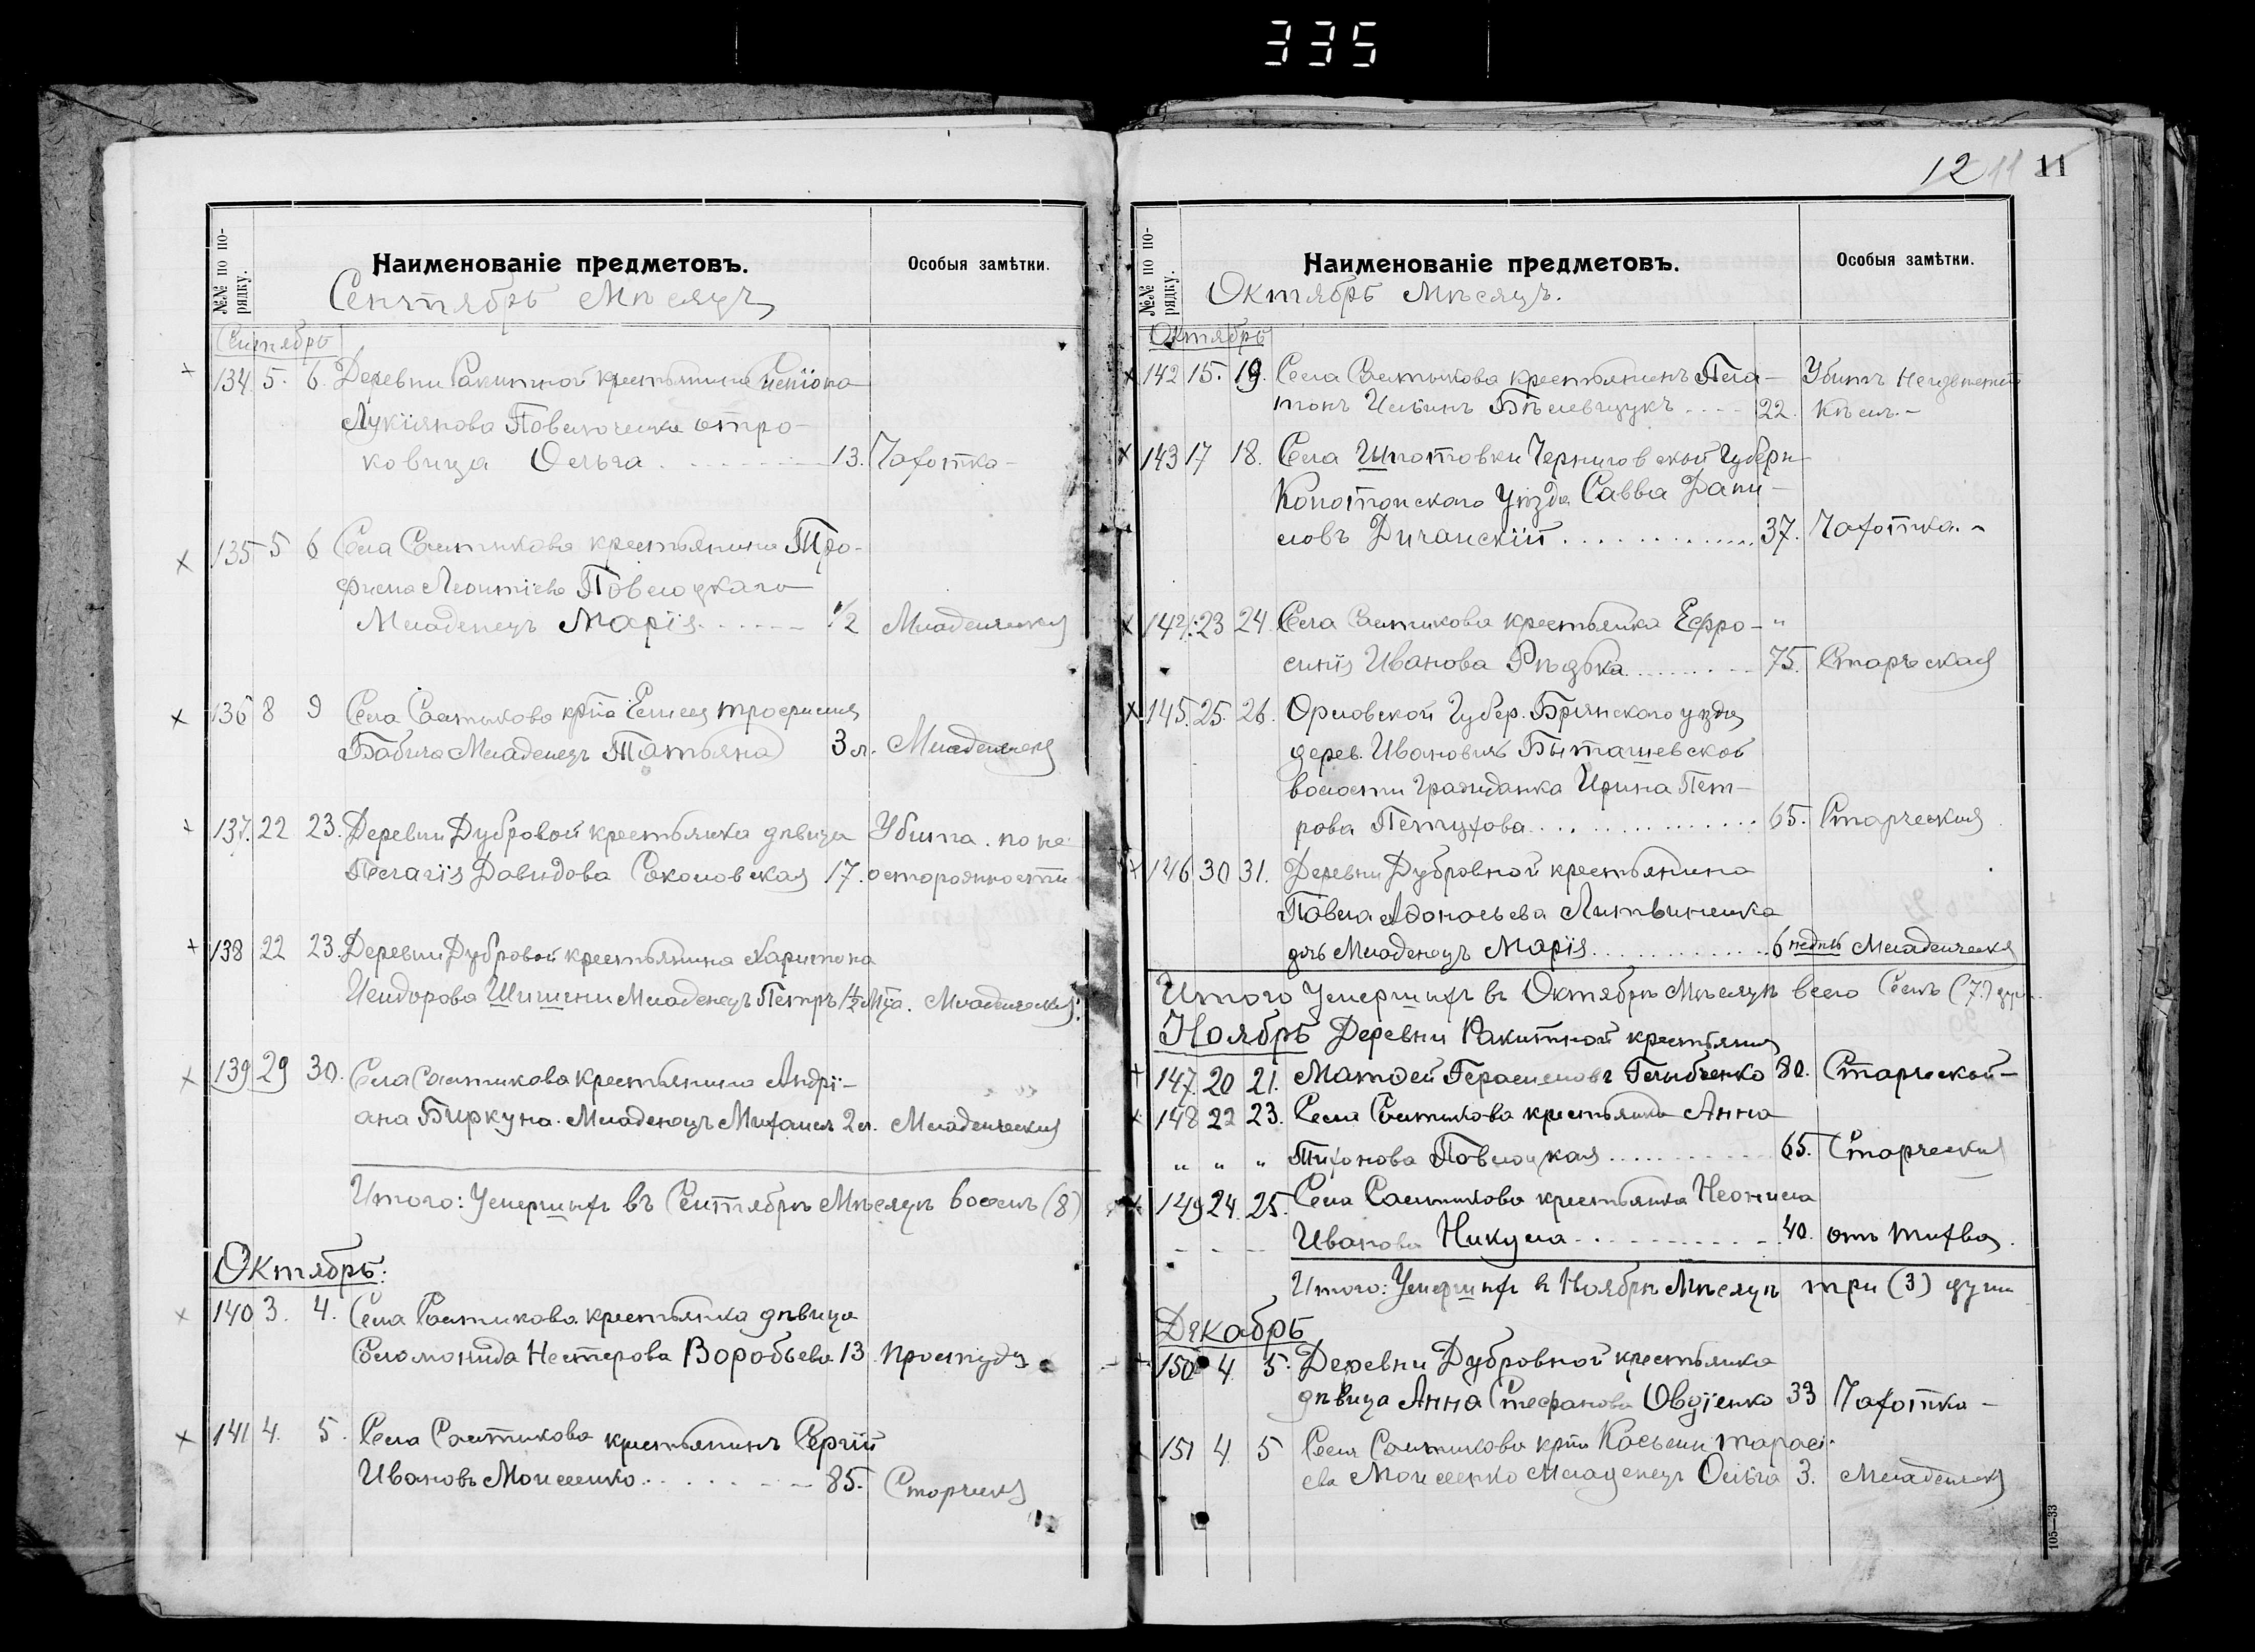 335
12 11 11
№№ по по-
рядку.
Наименованіе предметовъ.
Особыя замѣтки.
Сентябрь Мѣсяцъ
Сентябрь
134. 5. 6. Деревни Ракитной крестьянина
Лукіянова Павлюченка отро-
ковица Ольга 13. Чахотка
135 5 6 Села Салтикова крестьянина Тро-
фима Леонтіева Павлоцкаго
Младенецъ Марія 1/2 Младенческая
136 8 9 Села Салтыкова кр-на Елисея Трофимия
Бабича Младенецъ Татьяна 3 л. Младенческ
137. 22 23. Деревни Дубровой крестьянка дѣвица Убита по не
Пелагія Давидова Соколовская 17. осторожности
138 22 23. Деревни Дубровой крестьянина Харитона
Исидорова Шишени Младенецъ Петръ 1½ мца. Младенческая
139 29 30. Села Салтикова крестьянина Андрі-
ана Биркуна. Младенецъ Михаилъ 2 л. Младенческая
Итого: Умершихъ въ Сентябрѣ Мѣсяцѣ восемь (8)
Октябрь:
140 3. 4. Села Салтикова крестьянка дѣвица
Соломонида Нестерова Воробьева 13 простуда
141 4. 5. Села Салтикова крестьянинъ Сергій
Ивановъ Моисеенко 85. Старческ
№№ по по-
рядку.
Наименованіе предметовъ.
Особыя замѣтки.
Октябрь мѣсяцъ.
Октябрь
142 15. 19. Села Салтыкова крестьянинъ Пла- Убитъ
тонъ Ильинъ 22.
143 17 18. Села Шпотовки Черниговской Губерн
Конотопскаго Уѣзда Савва Дани-
ловъ Дичанскій 37. Чахотка.
144 23 24 Села Салтикова крестьянка Ефро- "
синія Иванова Рѣдька 75. Старческая
145. 25. 26. Орловской Губер. Брянскаго уѣзда
дерев. Ивановичъ Бытошевской
волости гражданка Ирина Пет-
рова Петухова 65. Старческая
146 30 31. Деревни Дубровной крестьянина
Павла Афанасьева Литвиненка
дочь Младенецъ Марія 6 недѣль Младенческа
Итого Умершихъ въ Октябрѣ Мѣсяцѣ всего Семь (7)
Ноябрь Деревни Ракитной крестьянин
147. 20 21. Матвей Герасимовъ 80. Старческой
148 22 23. Села Салтикова крестьянка Анна
" " " Тихонова Павлоцкая 65. Старческая
149 24. 25. Села Салтыкова крестьянка Неонила
Иванова Никула 40. отъ тифва.
Итого: Умершихъ в Ноябрѣ Мѣсяцѣ три (3) души
Декабрь
150 4. 5. Деревни Дубровной крестьянка
дѣвица Анна Стефанова Овдіенко 33 Чахотка
151 4. 5 Села Салтикова кр-на Касьяна Тарась
ева Моисеенко младенецъ Ольга 3. Младенческ
105—33